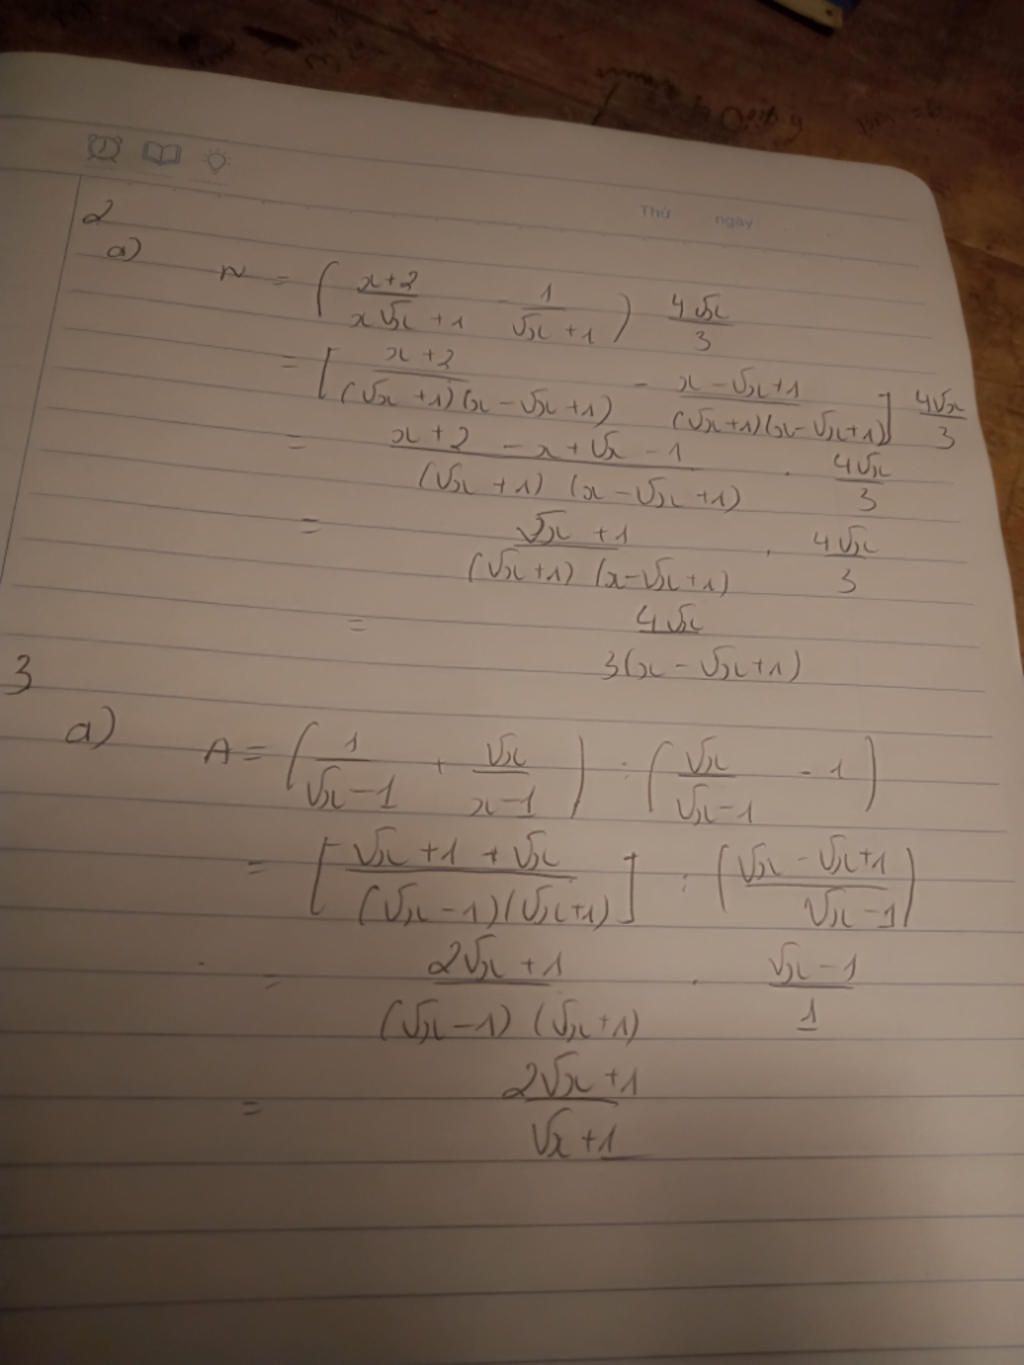 Thứ ngày
2
a) N = ( x+2 / x√x +1 - 1 / √x +1 ) 4√x / 3
= [ x+2 / (√x +1)(x-√x+1) - x-√x+1 / (√x+1)(x-√x+1) ] 4√x / 3
= x+2 - x+√x - 1 / (√x +1) (x-√x+1) . 4√x / 3
= √x +1 / (√x+1) (x-√x+1) . 4√x / 3
= 4√x / 3(x-√x+1)
3
a) A = ( 1 / √x-1 + √x / x-1 ) : ( √x / √x-1 - 1 )
= [ √x+1+√x / (√x-1)(√x+1) ] : ( √x-√x+1 / √x-1 )
= 2√x+1 / (√x-1) (√x+1) . √x-1 / 1
= 2√x+1 / √x+1